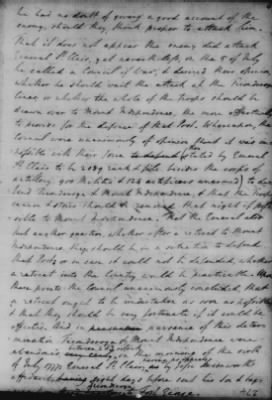 he had no doubt of giving a good account of the
enemy, should they think proper to attack him.
That it does not appear the enemy did attack
General St Clair, yet nevertheless, on the 5 of July
he called a Council of War, & desired their opinion
whether he should wait the attack at the Ticonderoga
lines, or whether the whole of the Troops should be
drawn over to Mount Independence, the more effectually
to provide for the defence of that Post. Whereupon, the
Council were unanimously of opinion that it was
with their force stated by General
St Clair to be 2089 rank & file besides the corps of
artillery
Ticonderoga & Mount Independence, & that the
should be removed that night if
possible to Mount Independence. That the General also
put another question, whether after a retreat to Mount
Independence, they should be in a situation to defend
that Post, or in case it could not be defended, whether
a retreat into the Country would be practicable. Upon
these points the Council unanimously concluded, that
a retreat ought to be undertaken as soon as possible
& that they should be very fortunate if it could be
effected. And in pursuance of this determination
Ticonderoga & Mount Independence were
abandoned on the morning of the sixth
of July 1777 General St Clair,
days before sent his
Fort George.